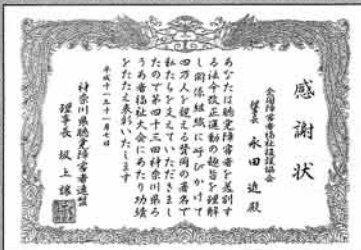 感謝状
全国障害者福祉援護協会
会長 永田 近 殿
あなたは聴覚障害者を差別す
る法令改正運動の趣旨を理解
し関係組織に呼びかけて
四万人を超える賛同の署名で
私たちを支えていただきまし
たので第四十三回神奈川県ろ
うあ者福祉大会にあたり功績
をたたえ表彰いたします
平成十一年十一月七日
神奈川県聴覚障害者連盟
理事長 坂上譲